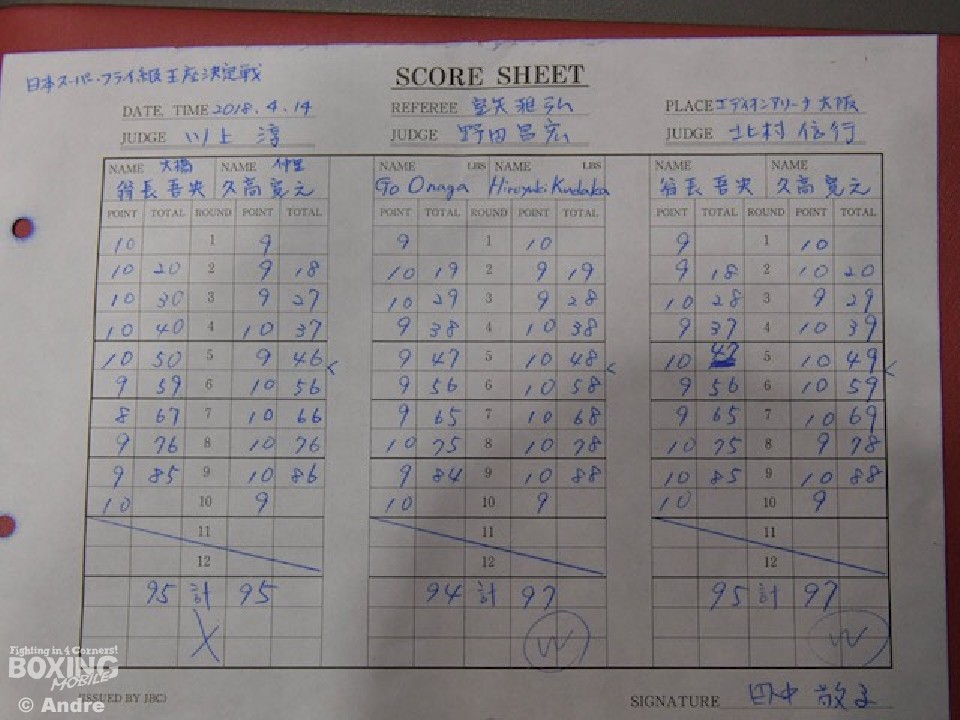 日本スーパー・フライ級王座決定戦
SCORE SHEET
DATE, TIME 2018.4.14 REFEREE 堅矢雅弘 PLACE エディオンアリーナ大阪
JUDGE 川上淳 JUDGE 野田昌宏 JUDGE 北村信行
NAME 大橋 NAME 仲里 NAME LBS NAME LBS NAME NAME
翁長吾央 久高寛之 Go Onaga Hiroyuki Kudaka 翁長吾央 久高寛之
POINT TOTAL ROUND POINT TOTAL POINT TOTAL ROUND POINT TOTAL POINT TOTAL ROUND POINT TOTAL
10 1 9 9 1 10 9 1 10
10 20 2 9 18 10 19 2 9 19 9 18 2 10 20
10 30 3 9 27 10 29 3 9 28 10 28 3 9 29
10 40 4 10 37 9 38 4 10 38 9 37 4 10 39
10 50 5 9 46 < 9 47 5 10 48 < 10 47 5 10 49 <
9 59 6 10 56 9 56 6 10 58 9 56 6 10 59
8 67 7 10 66 9 65 7 10 68 9 65 7 10 69
9 76 8 10 76 10 75 8 10 78 10 75 8 9 78
9 85 9 10 86 9 84 9 10 88 10 85 9 10 88
10 10 9 10 10 9 10 10 9
11 11 11
12 12 12
95 計 95 94 計 97 95 計 97
X W W
Fighting in 4 Corners!
BOXING
MOBILE
(ISSUED BY JBC) SIGNATURE 田中
© Andre